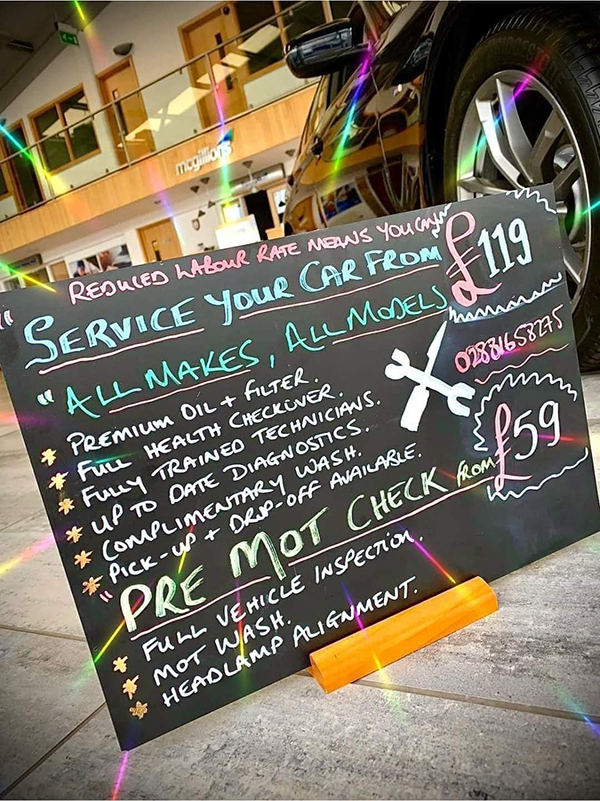 mcgillions
" REDUCED LABOUR RATE MEANS YOU CAN
SERVICE YOUR CAR FROM £119
" ALL MAKES, ALL MODELS
02881658275
* PREMIUM OIL + FILTER.
* FULL HEALTH CHECKOVER.
* FULLY TRAINED TECHNICIANS.
* UP TO DATE DIAGNOSTICS.
* COMPLIMENTARY WASH.
* PICK-UP + DROP-OFF AVAILABLE.
" PRE MOT CHECK FROM £59
* FULL VEHICLE INSPECTION.
* MOT WASH.
* HEADLAMP ALIGNMENT.